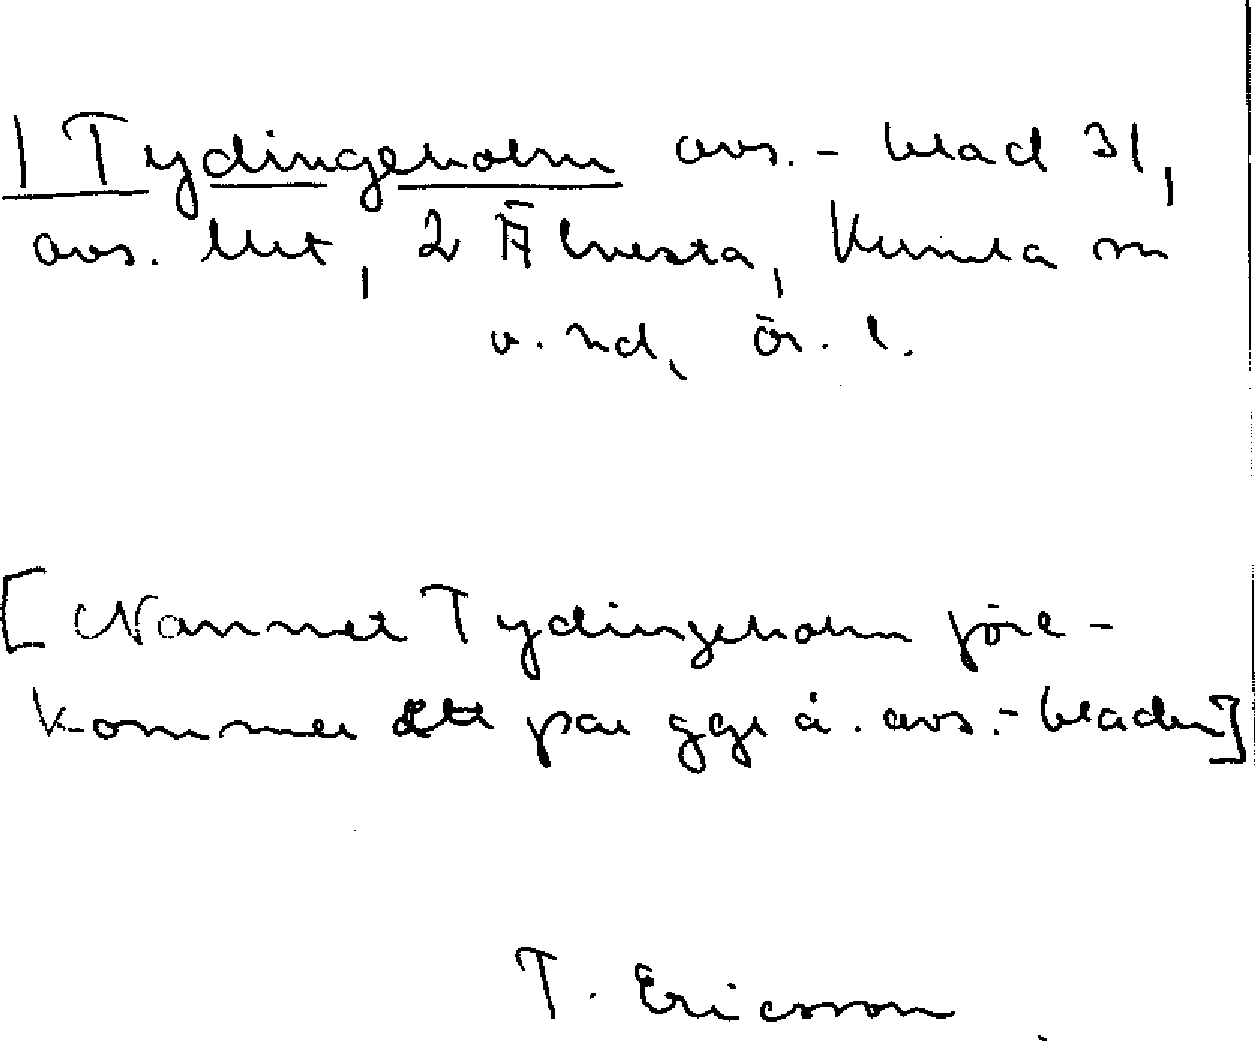 | Tydingeholm avs.-blad 31,
avs. litt, 2 Älvesta, Kumla sn
v. nd, ör. l.
[Namnet Tydingeholm före-
kommer ett par ggr å. avs.-bladen]
T. Ericsson